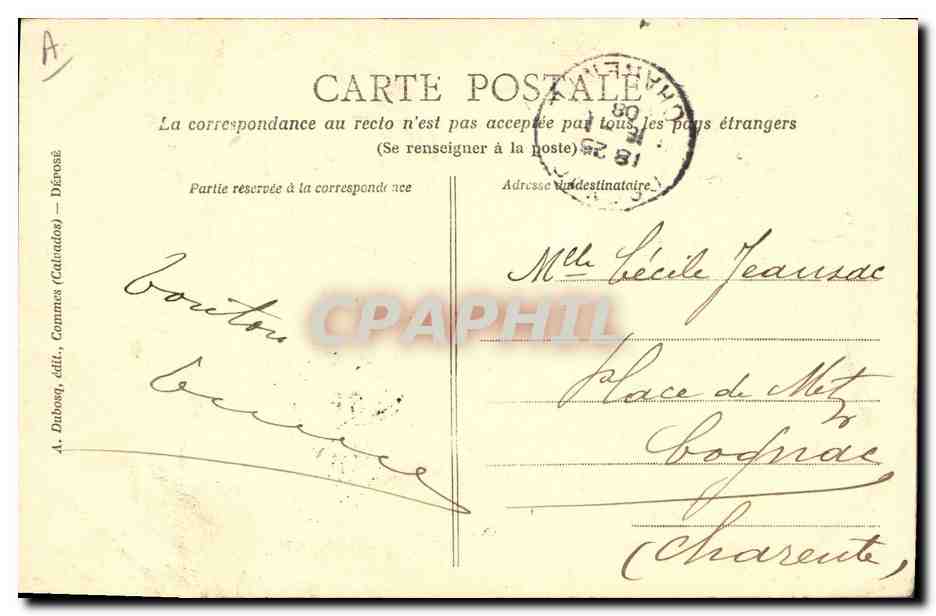 A
CARTE POSTALE
La correspondance au recto n'est pas acceptée par tous les pays étrangers
(Se renseigner à la poste)
Partie réservée à la correspondance
Adresse du destinataire
A. Dubosq, édit., Commes (Calvados) — Déposé
18 25
08
CHAREN
CPAPHIL
Mlle Cécile Jeansac
Place de Metz
Cognac
(Charente)